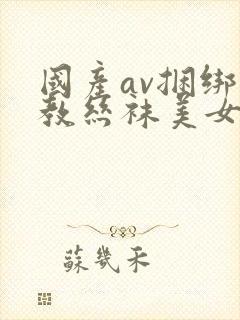 國産av捆绑
教絲袜美女
蘇幾禾